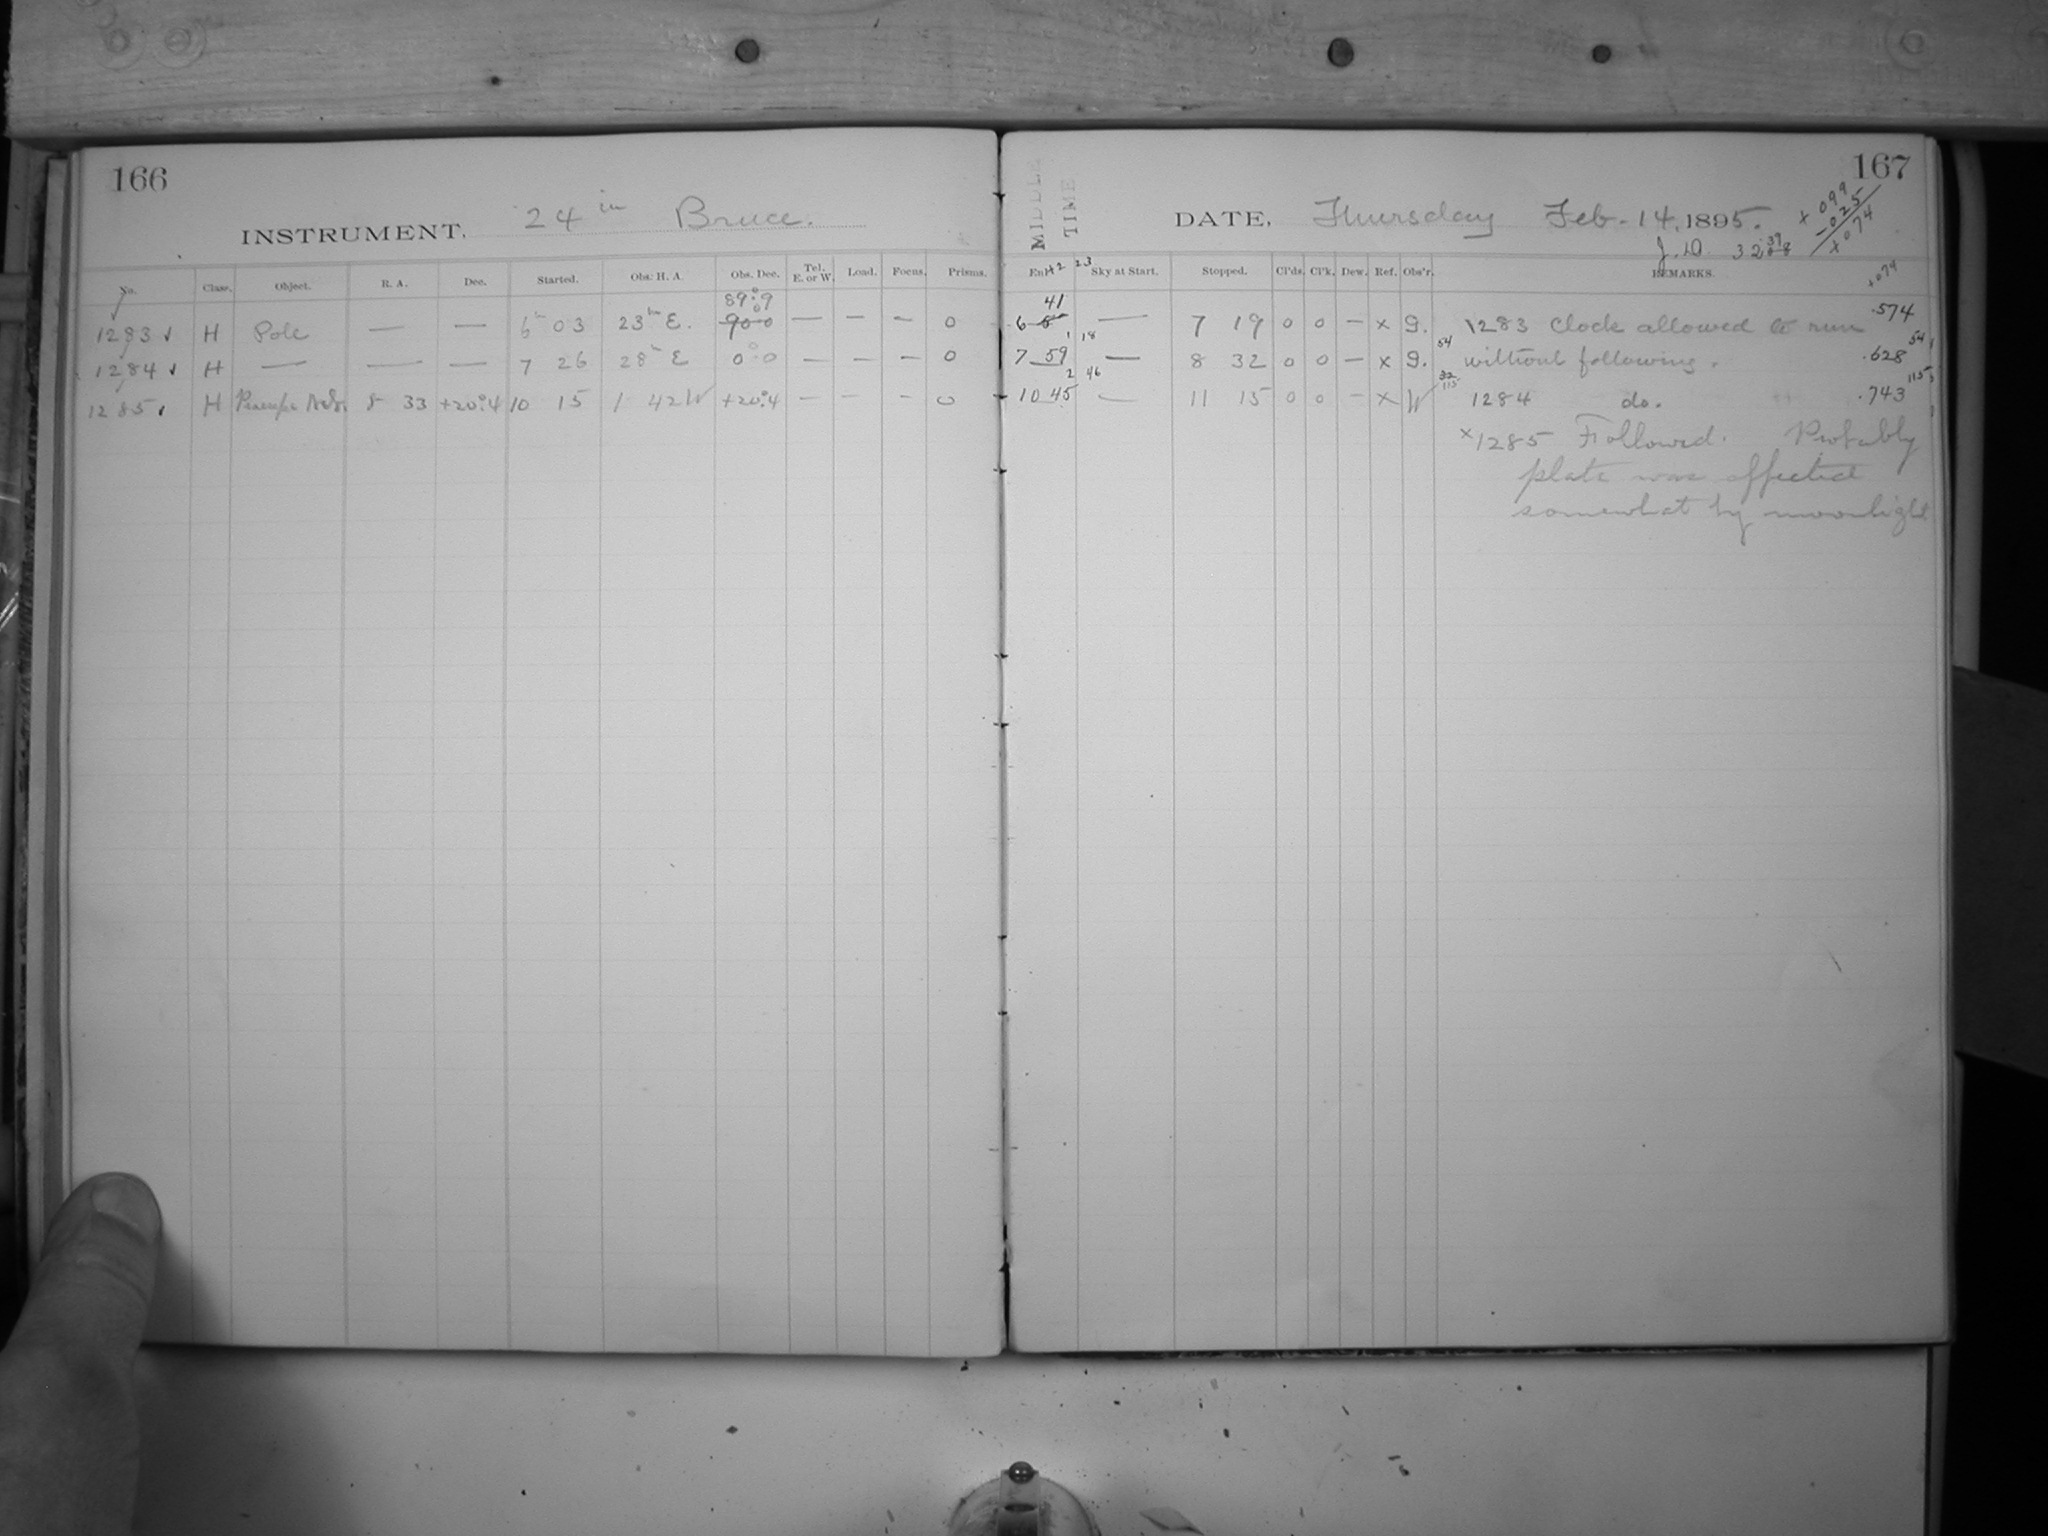 166
INSTRUMENT, 24 in Bruce.
No. Class. Object. R. A. Dec. Started. Obs. H. A. Obs. Dec. Tel. E. or W. Load. Focus. Prisms.
89°.9
1283 H Pole — — 6h 03 23m E. 90°0 — — — 0
1284 H — — — 7 26 28m E 0°0 — — — 0
1285 H Praesepe 8 33 +20°.4 10 15 1 42 W +20°.4 — — — 0
167
MIDDLE TIME
DATE, Thursday Feb. 14, 1895.
+099
-025
+074
J.D. 32
+2 23
Sky at Start. Stopped. Cl'ds. Cl'k. Dew. Ref. Obs'r. REMARKS.
+074
41
6 — 7 19 0 0 — x G. 1283 Clock allowed to run .574
1 18 54 54
7 59 — 8 32 0 0 — x G. without following. .628
2 46 32 115 115
10 45 — 11 15 0 0 — x W 1284 do. .743
x1285 Followed. Probably
plate was affected
somewhat by moonlight